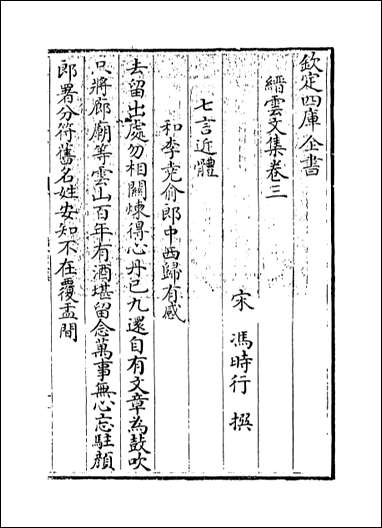 欽定四庫全書
縉雲文集卷三
宋 馮時行 撰
七言近體
和李堯俞郎中西歸有感
去留出處勿相關煉得心丹已九還自有文章為鼓吹
只將廊廟等雲山百年有酒堪留念萬事無心忘駐顔
郎署分符舊名姓安知不在覆盂間